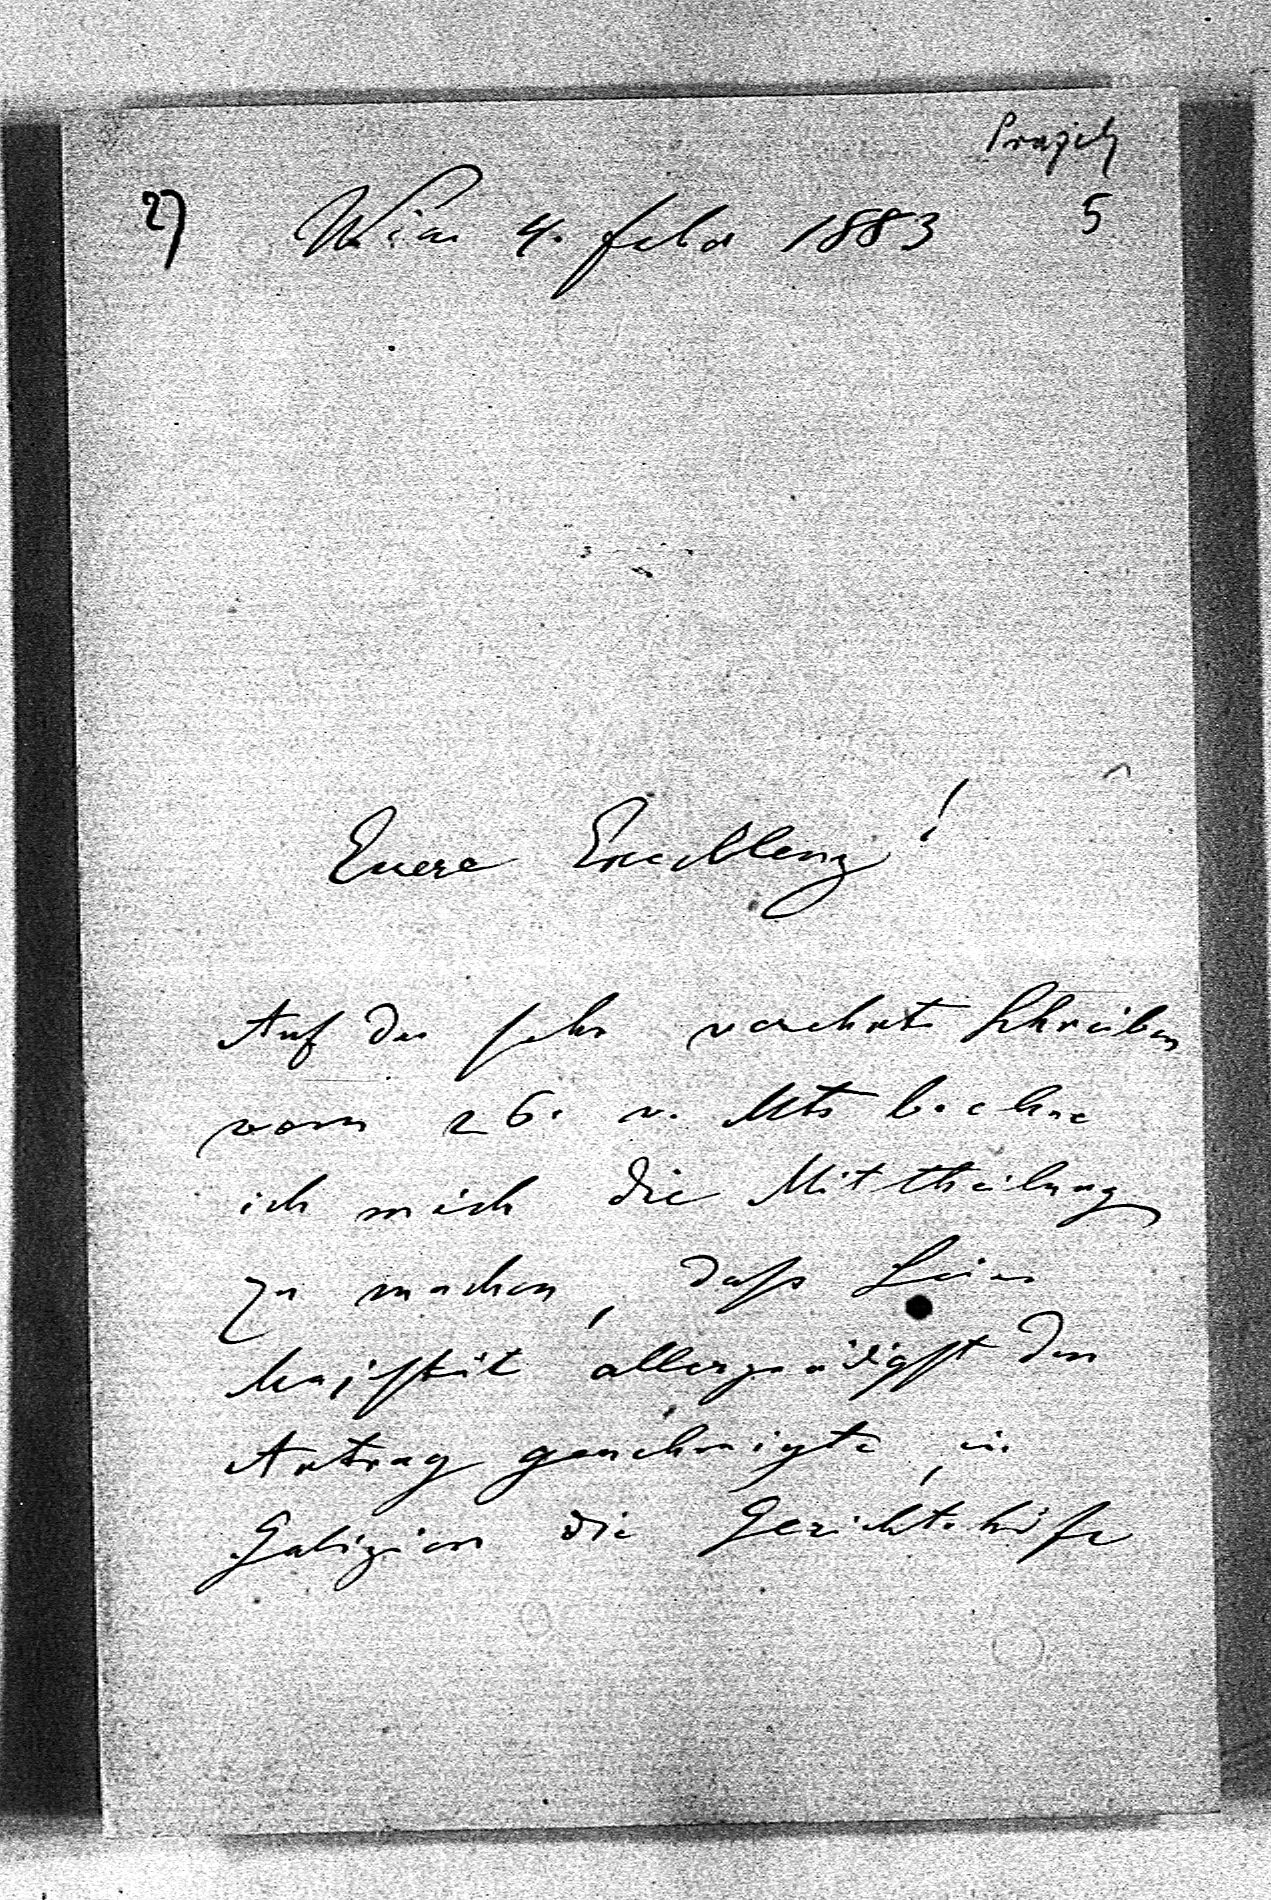 Pražak
27 Wien 4. Febr 1883 5
Euere Excellenz!
Auf das sehr verehrte Schreiben
vom 26. v. Mts beehre
ich mich die Mittheilung
zu machen, daß Seine
Majestät allergnädigst den
Antrag genehmigte, in
Galizien die Gerichtshöfe